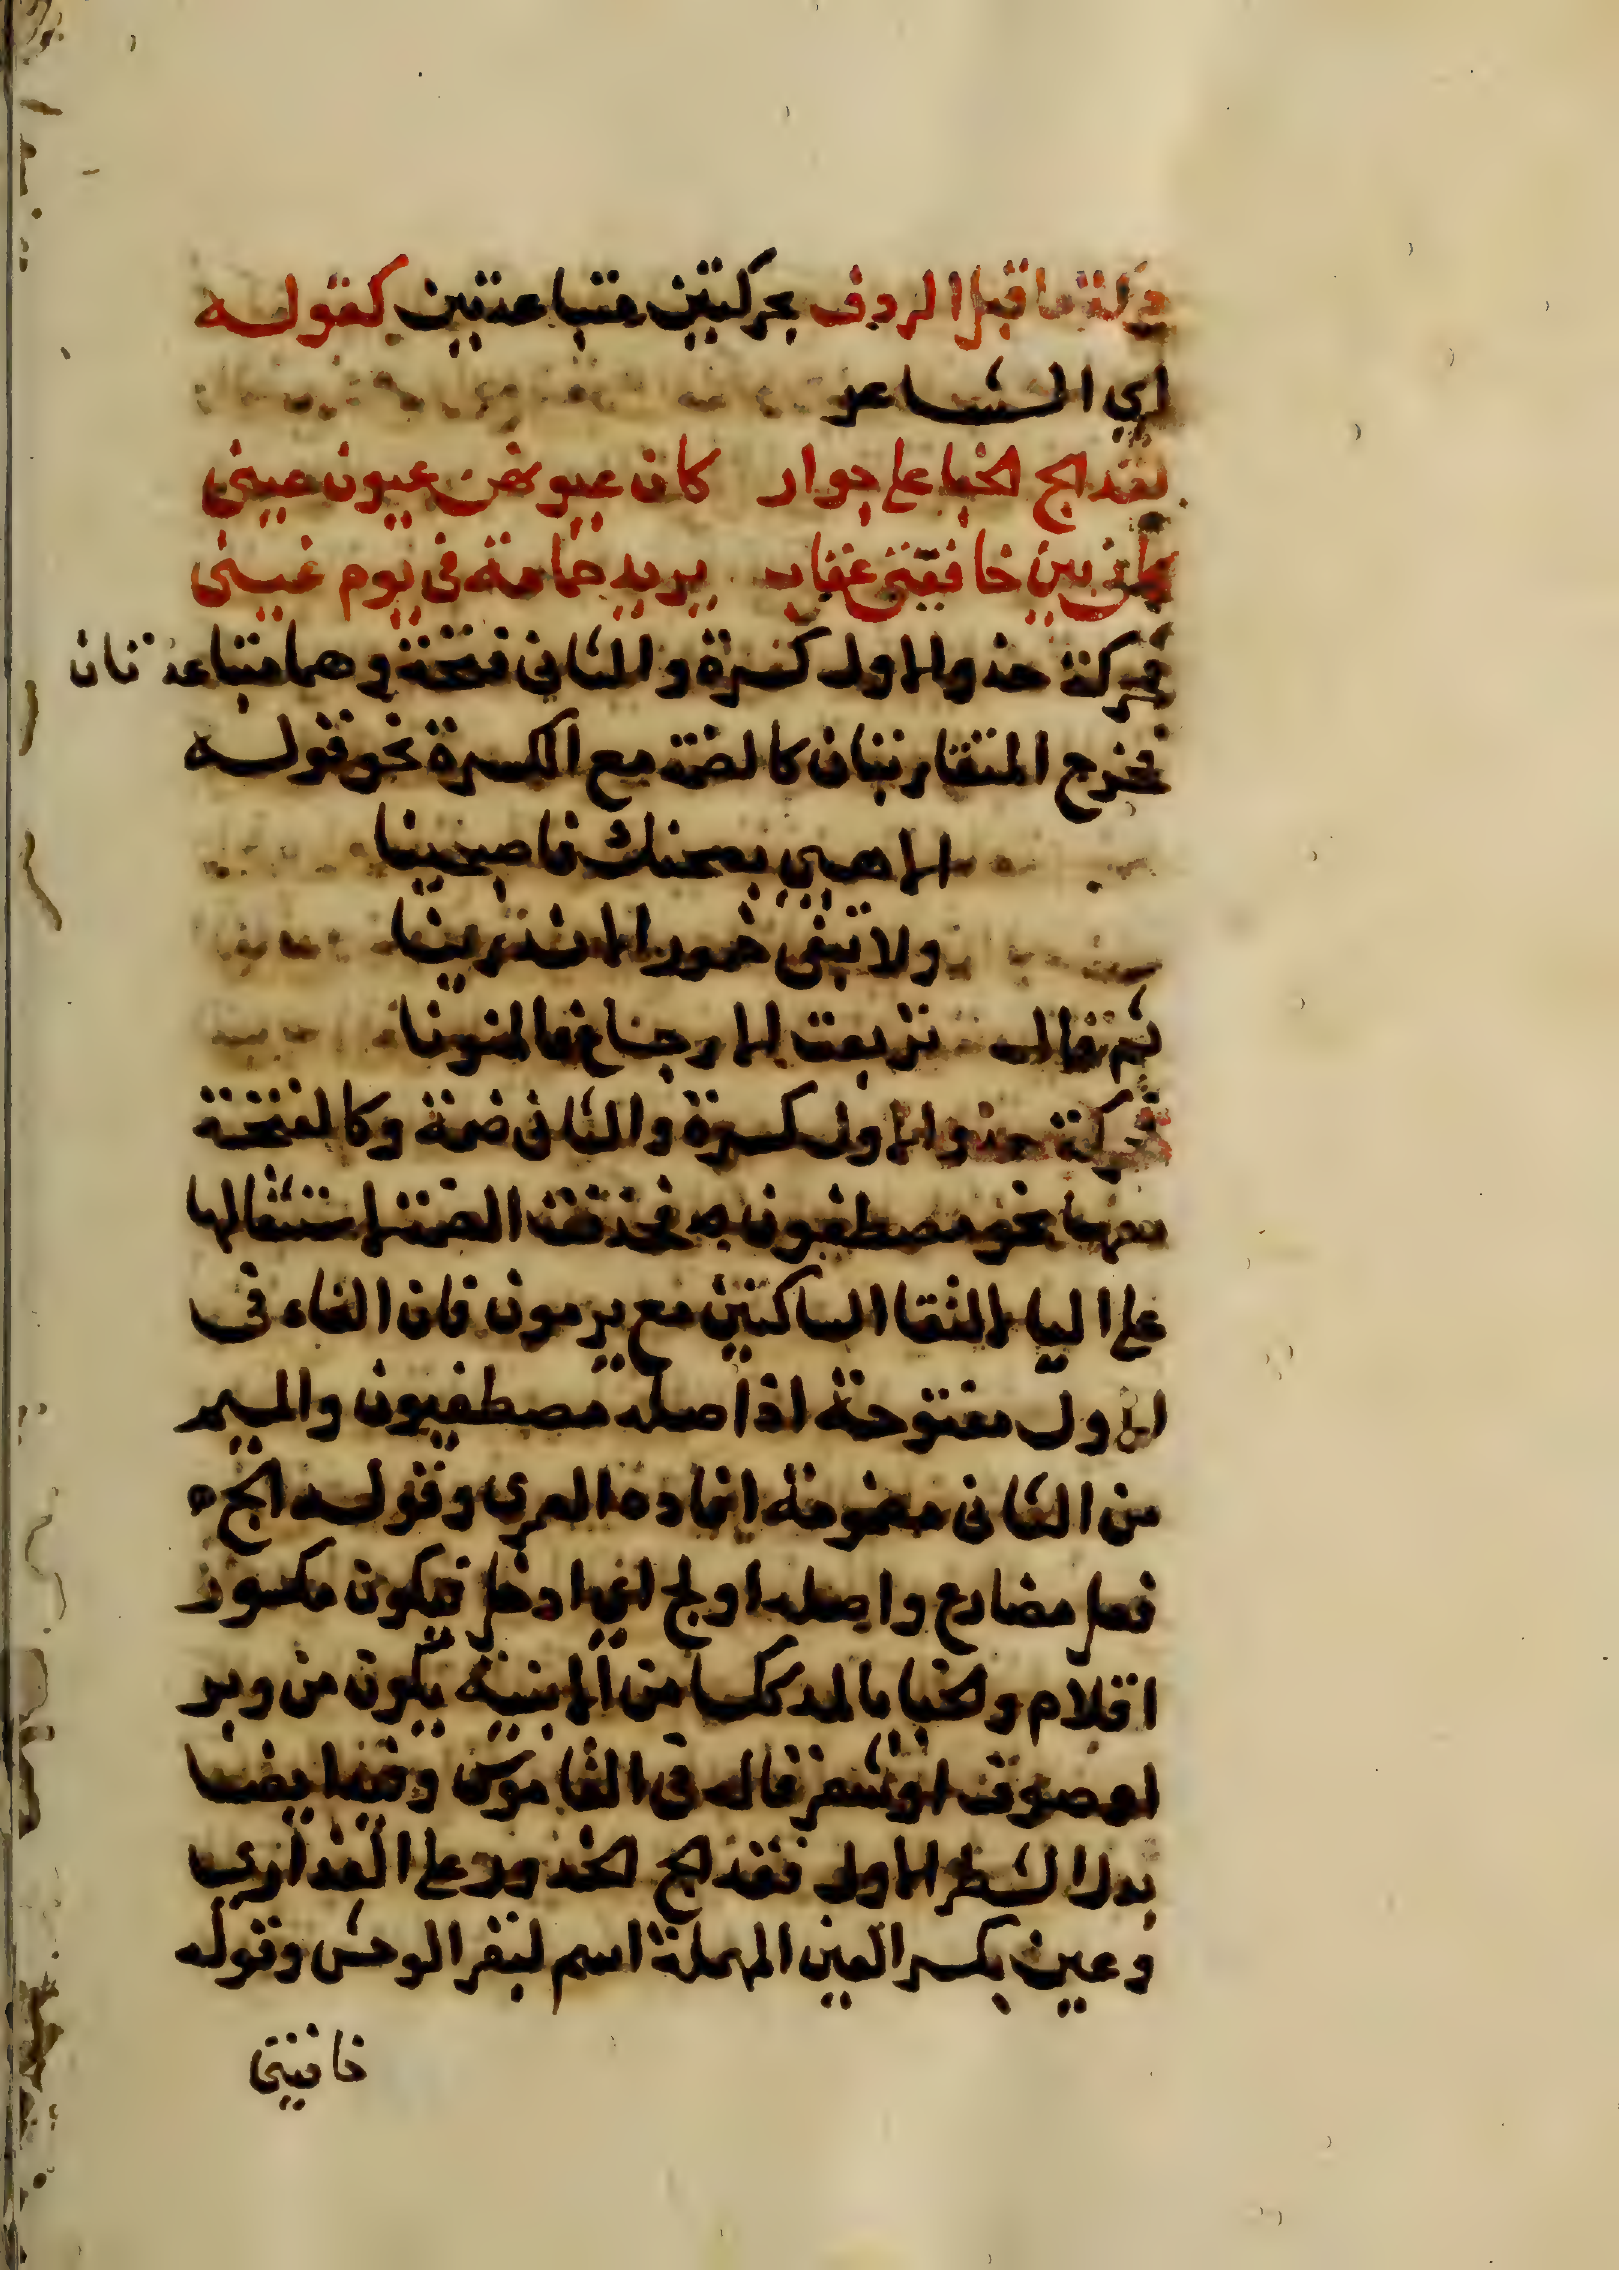 حركة ما قبل الردف بحركتين متباعدتين كقوله
اي الشاعر
لقد الج الخبا على جوار كان عيونهن عيون عيني
كاني بين خافقتي عقاب يريد حمامة في يوم غيني
فحركة حذو الاول كسرة والثاني فتحة وهما متباعدتان
فخرج المتقاربتان كالضمة مع الكسرة نحو قوله
الا هبي بصحنك فاصبحينا
ولا تبقي خمور الاندرينا
ثم قال تربعت الاجارع فالمتونا
فحركة حذو الاول كسرة والثاني ضمة وكالفتحة
معها نحو مصطفون فحذفت الضمة لاستثقالها
على اليا لالتقا الساكنين مع يرمون فان الفاء في
الاول مفتوحة اذ اصله مصطفيون والميم
من الثاني مضمومة افاده العمري وقوله الج
فعل مضارع واصله اولج اي ادخل تيكون مكسور
اقلام والخبا بالمد ككسا من الابنية يكون من وبر
او صوف او شعر قاله في القاموس وفيه ايضا
بدل الشطر الاول فقد الج الخدور على العذارى
وعين بكسر العين المهملة اسم لبقر الوحش وقوله
خافيتي